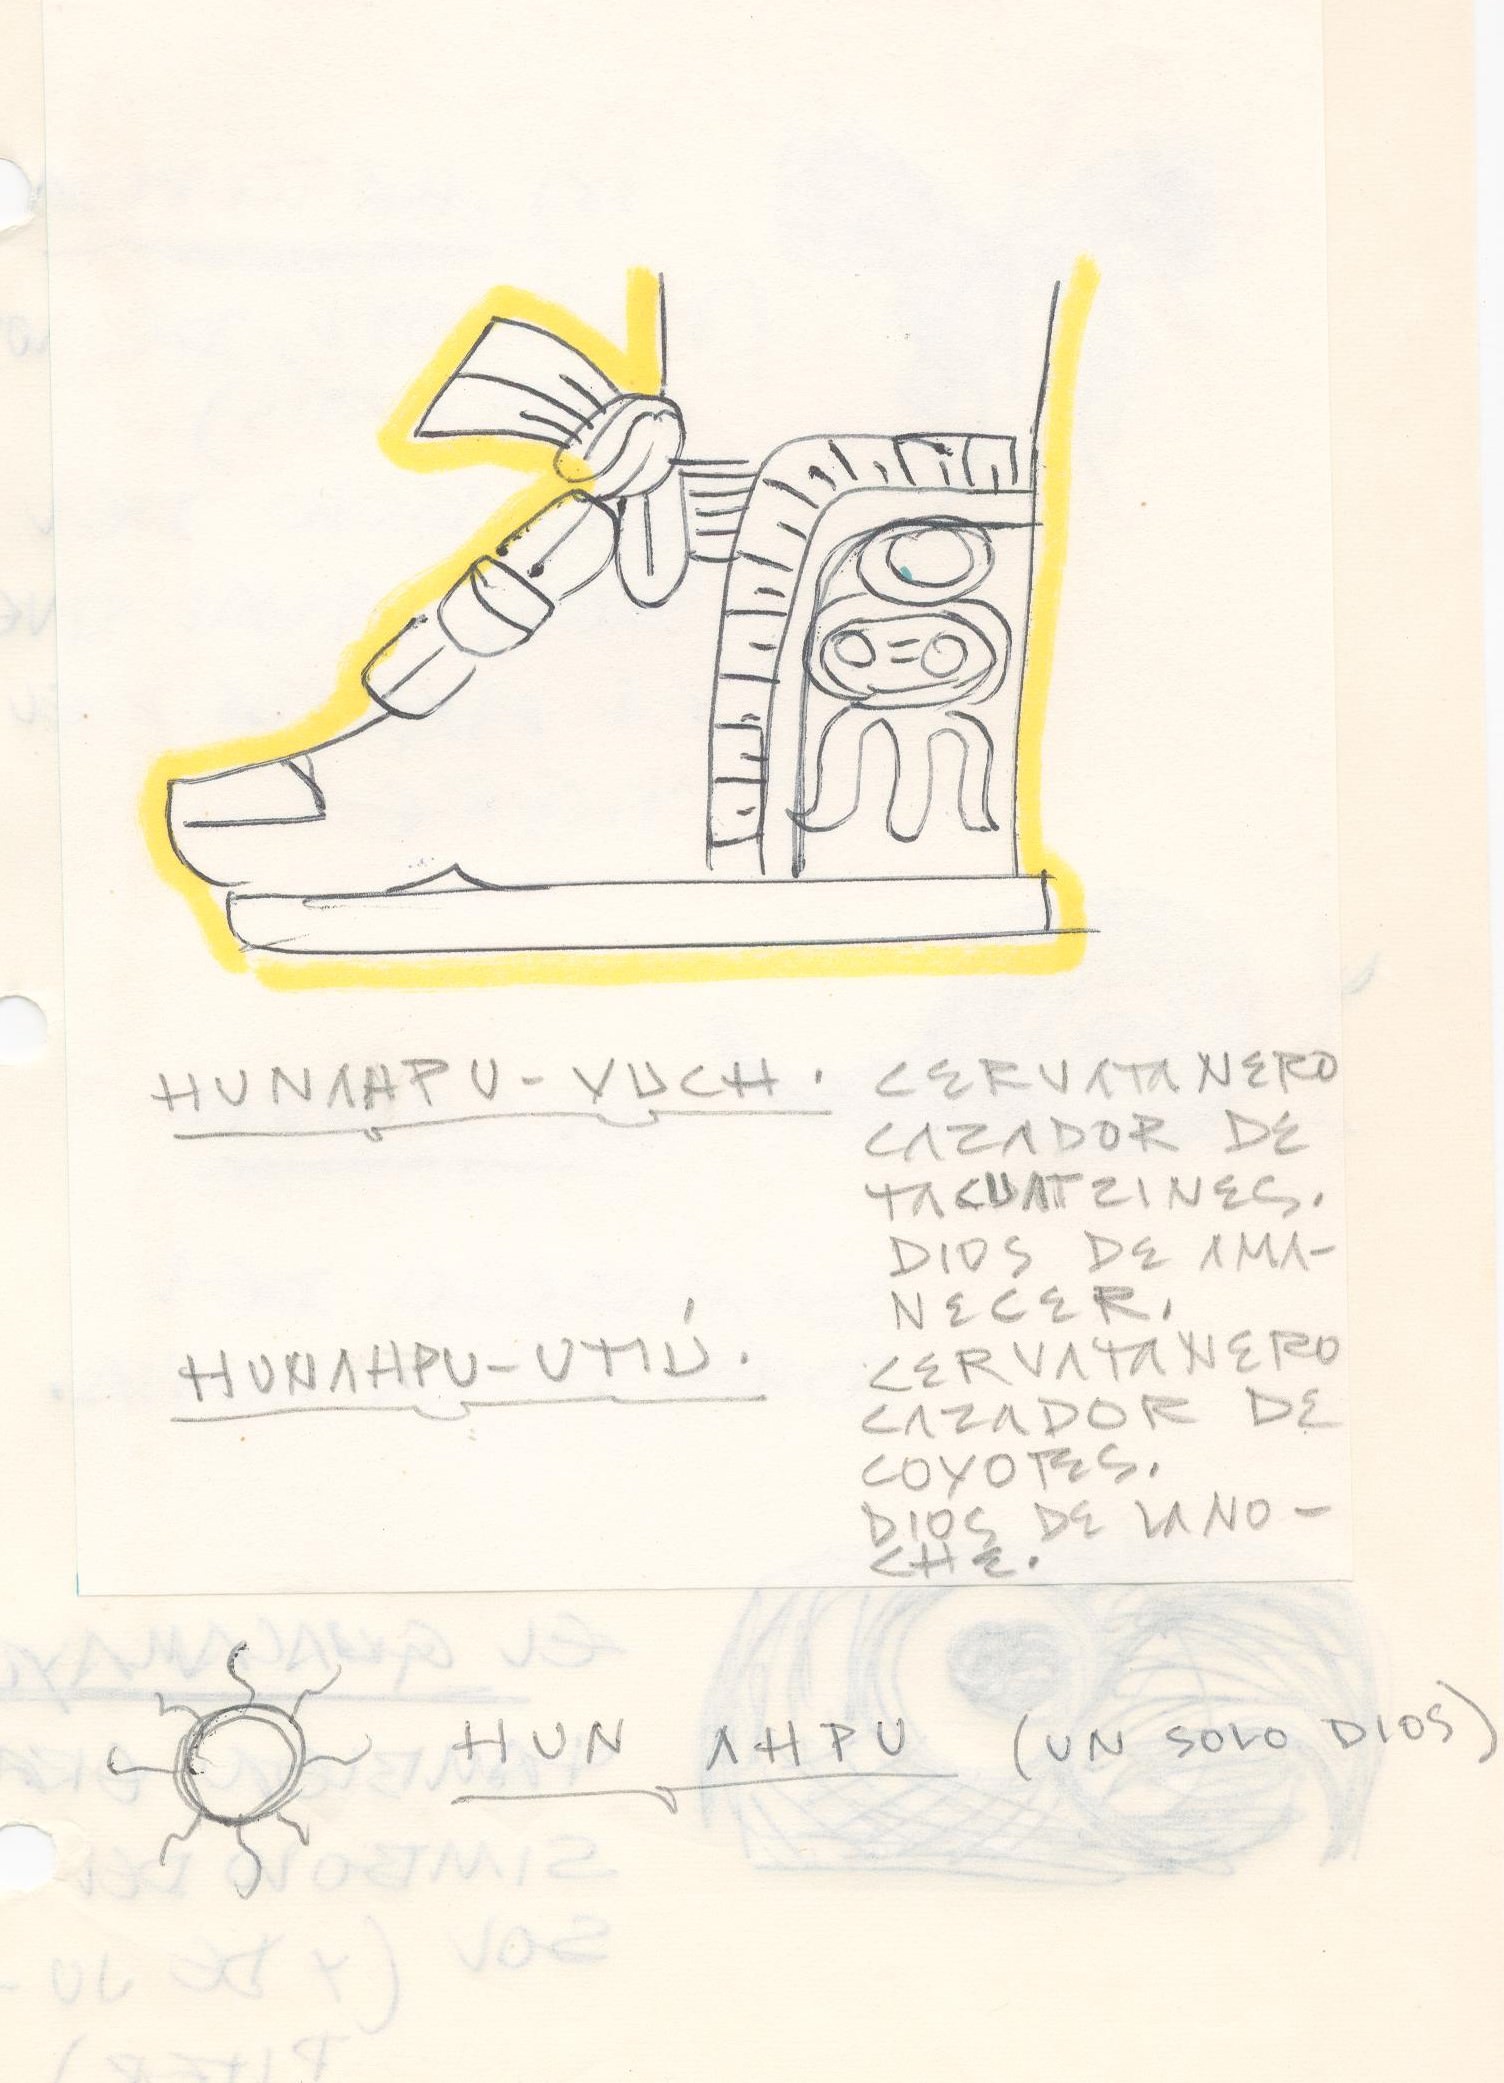 HUNAHPU-VUCH. CERVATANERO
CAZADOR DE
TACUATZINES.
DIOS DE AMA-
NECER.
HUNAHPU-UTIÚ. CERVATANERO
CAZADOR DE
COYOTES.
DIOS DE LA NO-
CHE.
HUN AHPU (UN SOLO DIOS)